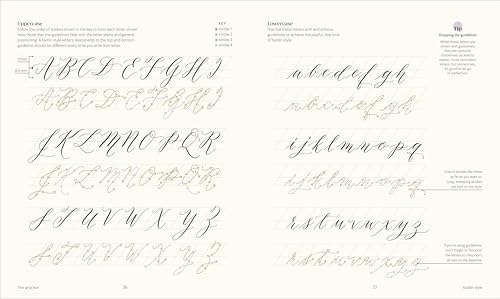 Uppercase
Follow the order of strokes shown in the key to form each letter shown
here. Note that the guidelines help with the letter slants and general
positioning. A Kaitlin style letter's relationship to the top and bottom
guideline should be different every time you write that letter.
KEY
stroke 1
stroke 2
stroke 3
stroke 4
A B C D E F G H I
A B C D E F G H I
J K L M N O P Q R
J K L M N O P Q R
S T U V W X Y Z
S T U V W X Y Z
The practice
26
Lowercase
Practise these letters with and without
guidelines to achieve the playful, free look
of Kaitlin style.
a b c d e f g h
a b c d e f g h
i j k l m n o p q
i j k l m n o p q
r s t u v w x y z
r s t u v w x y z
Tip
Dropping the guidelines
While these letters are
shown with guidelines,
they are optional.
Guidelines do lead to
neater, more controlled
letters, but sometimes
it's good to let go
of perfection.
as far as you want to.
Long, sweeping strokes
are part of the style.
If you're using guidelines,
don't forget to "bounce"
the letters so they don't
all rest on the baseline.
27
Kaitlin style